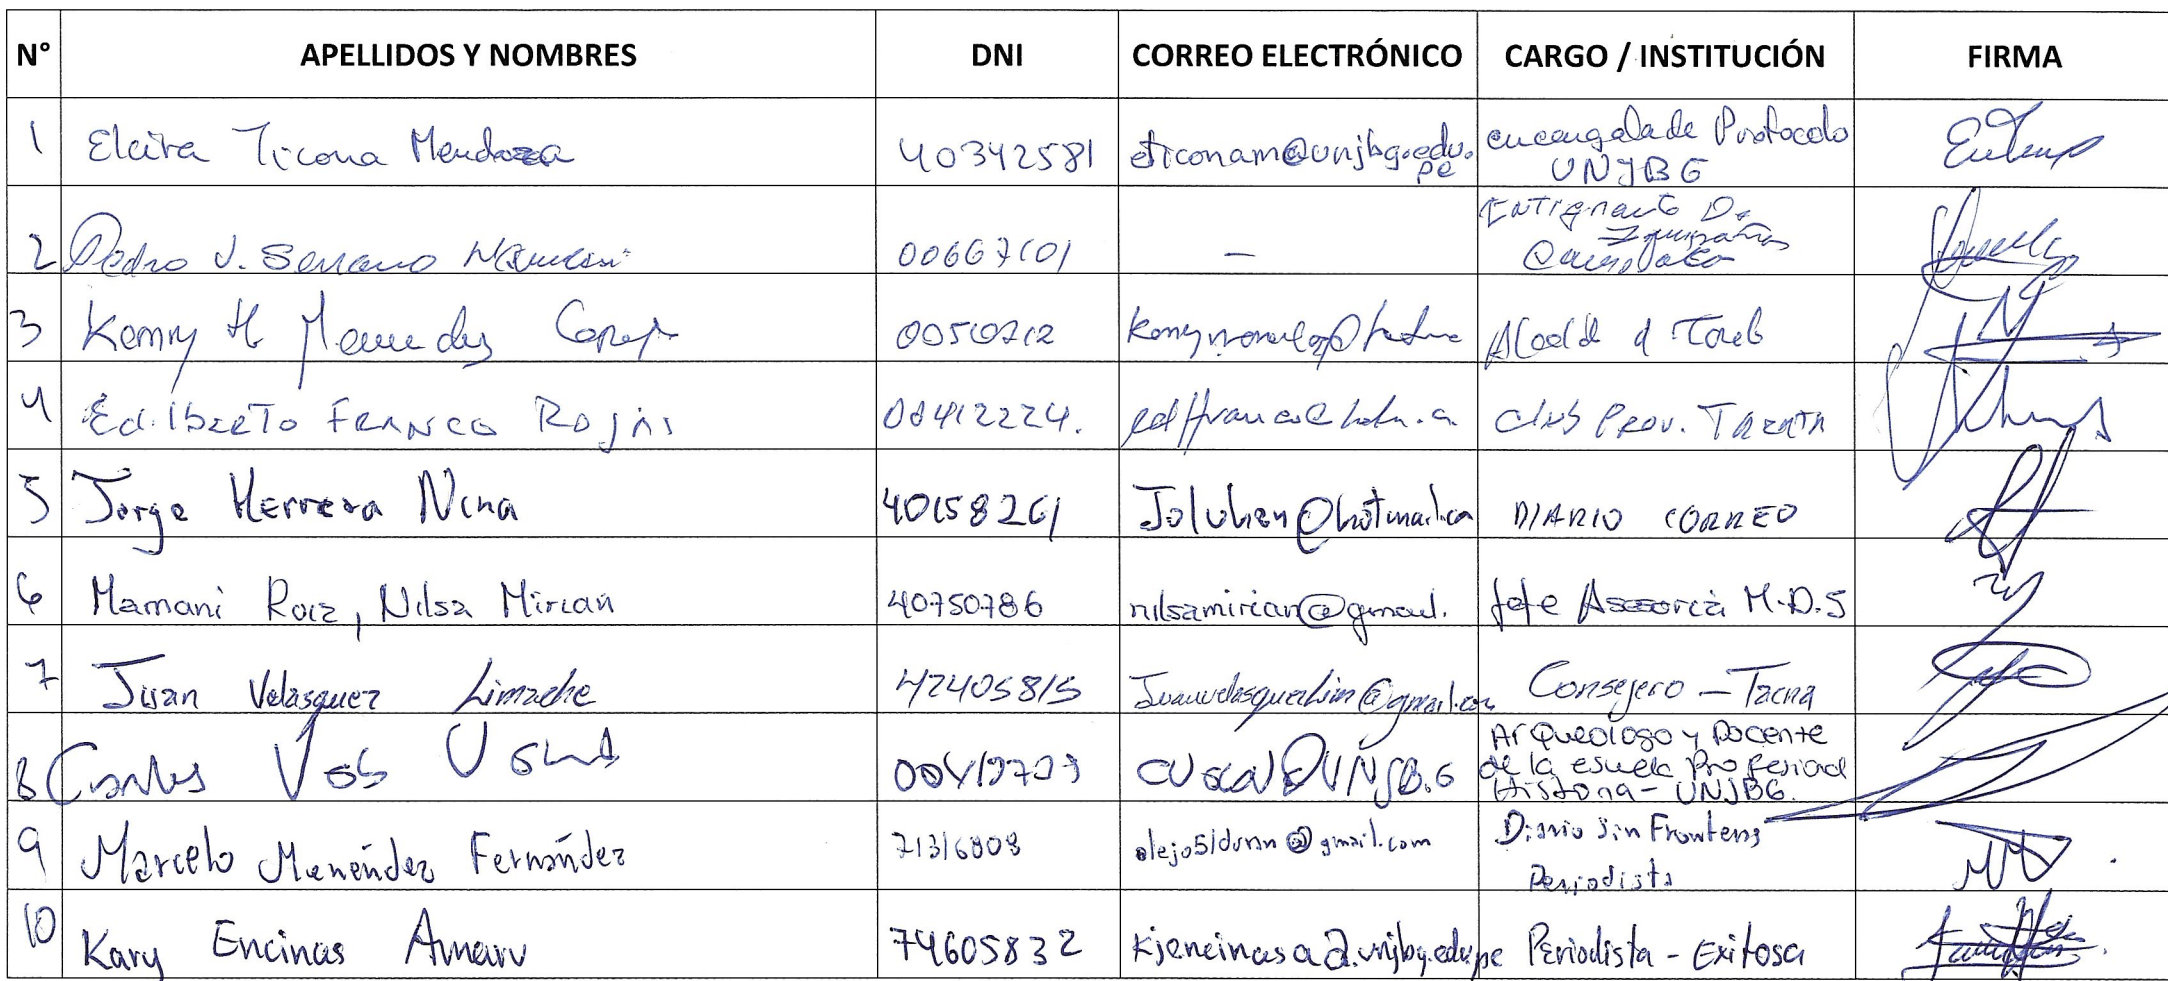 N° APELLIDOS Y NOMBRES DNI CORREO ELECTRÓNICO CARGO / INSTITUCIÓN FIRMA
1 Elcira Ticona Mendoza 40342581 eticonam@unjbg.edu.pe encargada de Protocolo UNJBG
2 Pedro J. Serrano Mamani 00667101 —
3 Kenny 00510212
4 Edilberto Franco Rojas 00412224. Club Prov. Tarata
5 Jorge Herrera Nina 40158261 Joluhen@hotmail.com DIARIO CORREO
6 Mamani Roiz, Nilsa Mirian 40750786 nilsamirian@gmail. Jefe Asesoria M.D.S
7 Juan Velasquez Limache 42405815 Juanvelasquezlim@gmail.com Consejero - Tacna
8 Carlos Arqueologo y Docente
de la escuela Profesional
Historia - UNJBG.
9 Marcelo Menéndez Fernández 71316808 alejo51duran@gmail.com Diario Sin Fronteras
Periodista
10 Kary Encinas Amaru 74605832 kjencinasa@unjbg.edu.pe Periodista - Exitosa